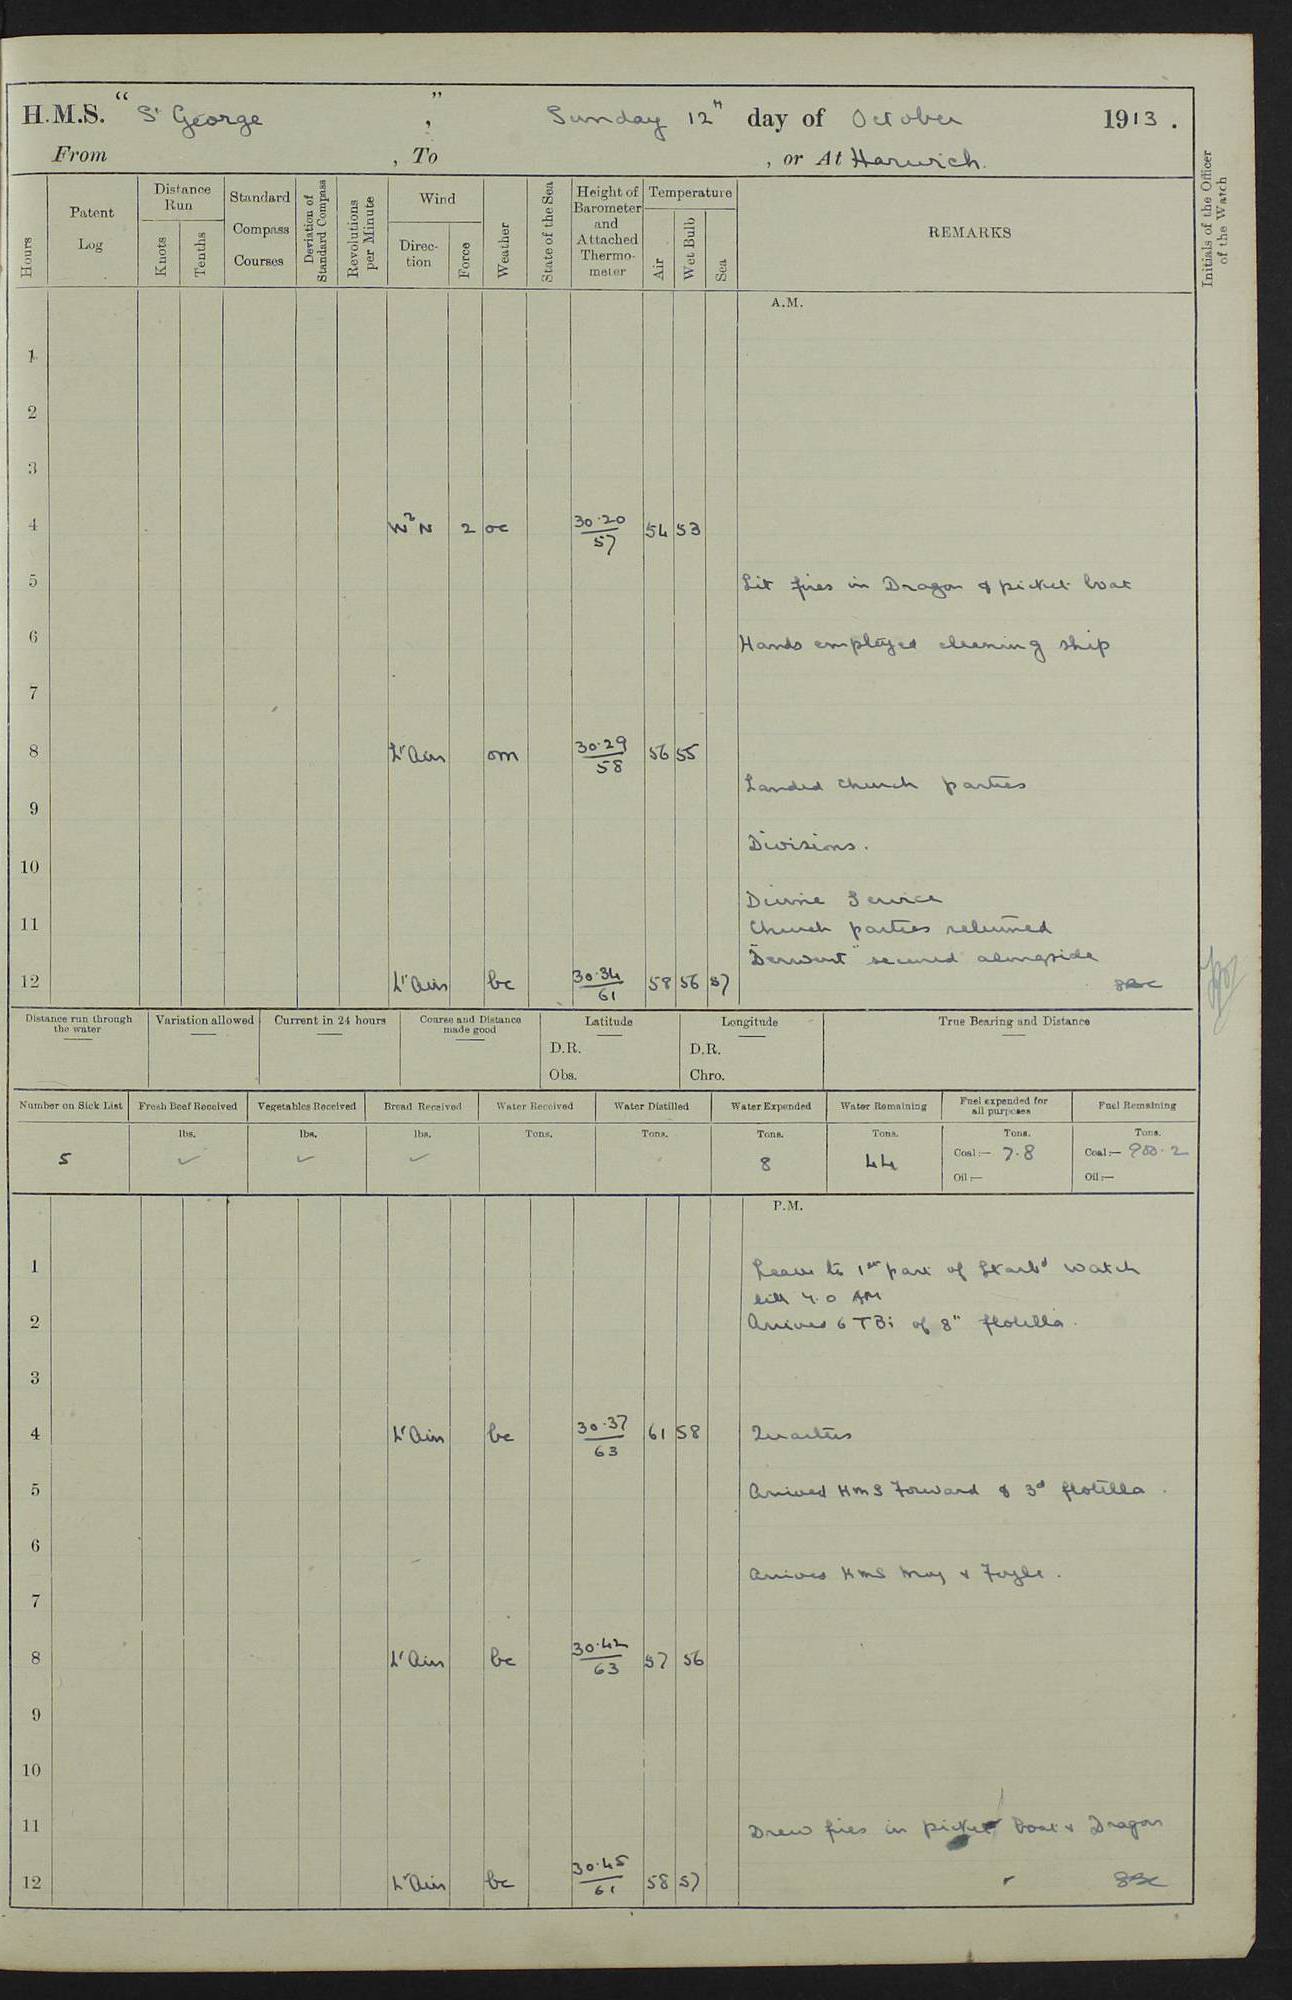 H.M.S. "St George", Sunday 12th day of October 1913.
From , To , or At Harwich.
Hours
Patent Log
Distance Run
Knots
Tenths
Standard Compass Courses
Deviation of Standard Compass
Revolutions per Minute
Wind
Direction
Force
Weather
State of the Sea
Height of Barometer and Attached Thermometer
Temperature
Air
Wet Bulb
Sea
REMARKS
Initials of the Officer of the Watch
A.M.
1
2
3
4 2 oc 30.20/57 54 53
5 Lit fires in Dragon & picket boat
6 Hands employed cleaning ship
7
8 Lt Airs om 30.29/58 56 55
Landed Church parties
9
Divisions.
10
Divine Service
11 Church parties returned
"Derwent" secured alongside
12 Lt Airs bc 30.34/61 58 56 57
Distance run through the water
Variation allowed
Current in 24 hours
Course and Distance made good
Latitude
D.R.
Obs.
Longitude
D.R.
Chro.
True Bearing and Distance
Number on Sick List Fresh Beef Received Vegetables Received Bread Received Water Received Water Distilled Water Expended Water Remaining Fuel expended for all purposes Fuel Remaining
lbs. lbs. lbs. Tons. Tons. Tons. Tons. Tons. Tons.
5 ✓ ✓ ✓ 8 44 Coal:— 7.8 Coal:— 900.2
Oil:— Oil:—
P.M.
1 Leave to 1st part of Starbd watch
till 7.0 AM
2 Arrived 6 TBs of 8th flotilla.
3
4 Lt Airs bc 30.37/63 61 58 Quarters
5 Arrived HMS Forward & 3d flotilla.
6
Arrived HMS Moy & Foyle.
7
8 Lt Airs bc 30.42/63 57 56
9
10
11 Drew fires in picket boat & Dragon
12 Lt Airs bc 30.45/61 58 57